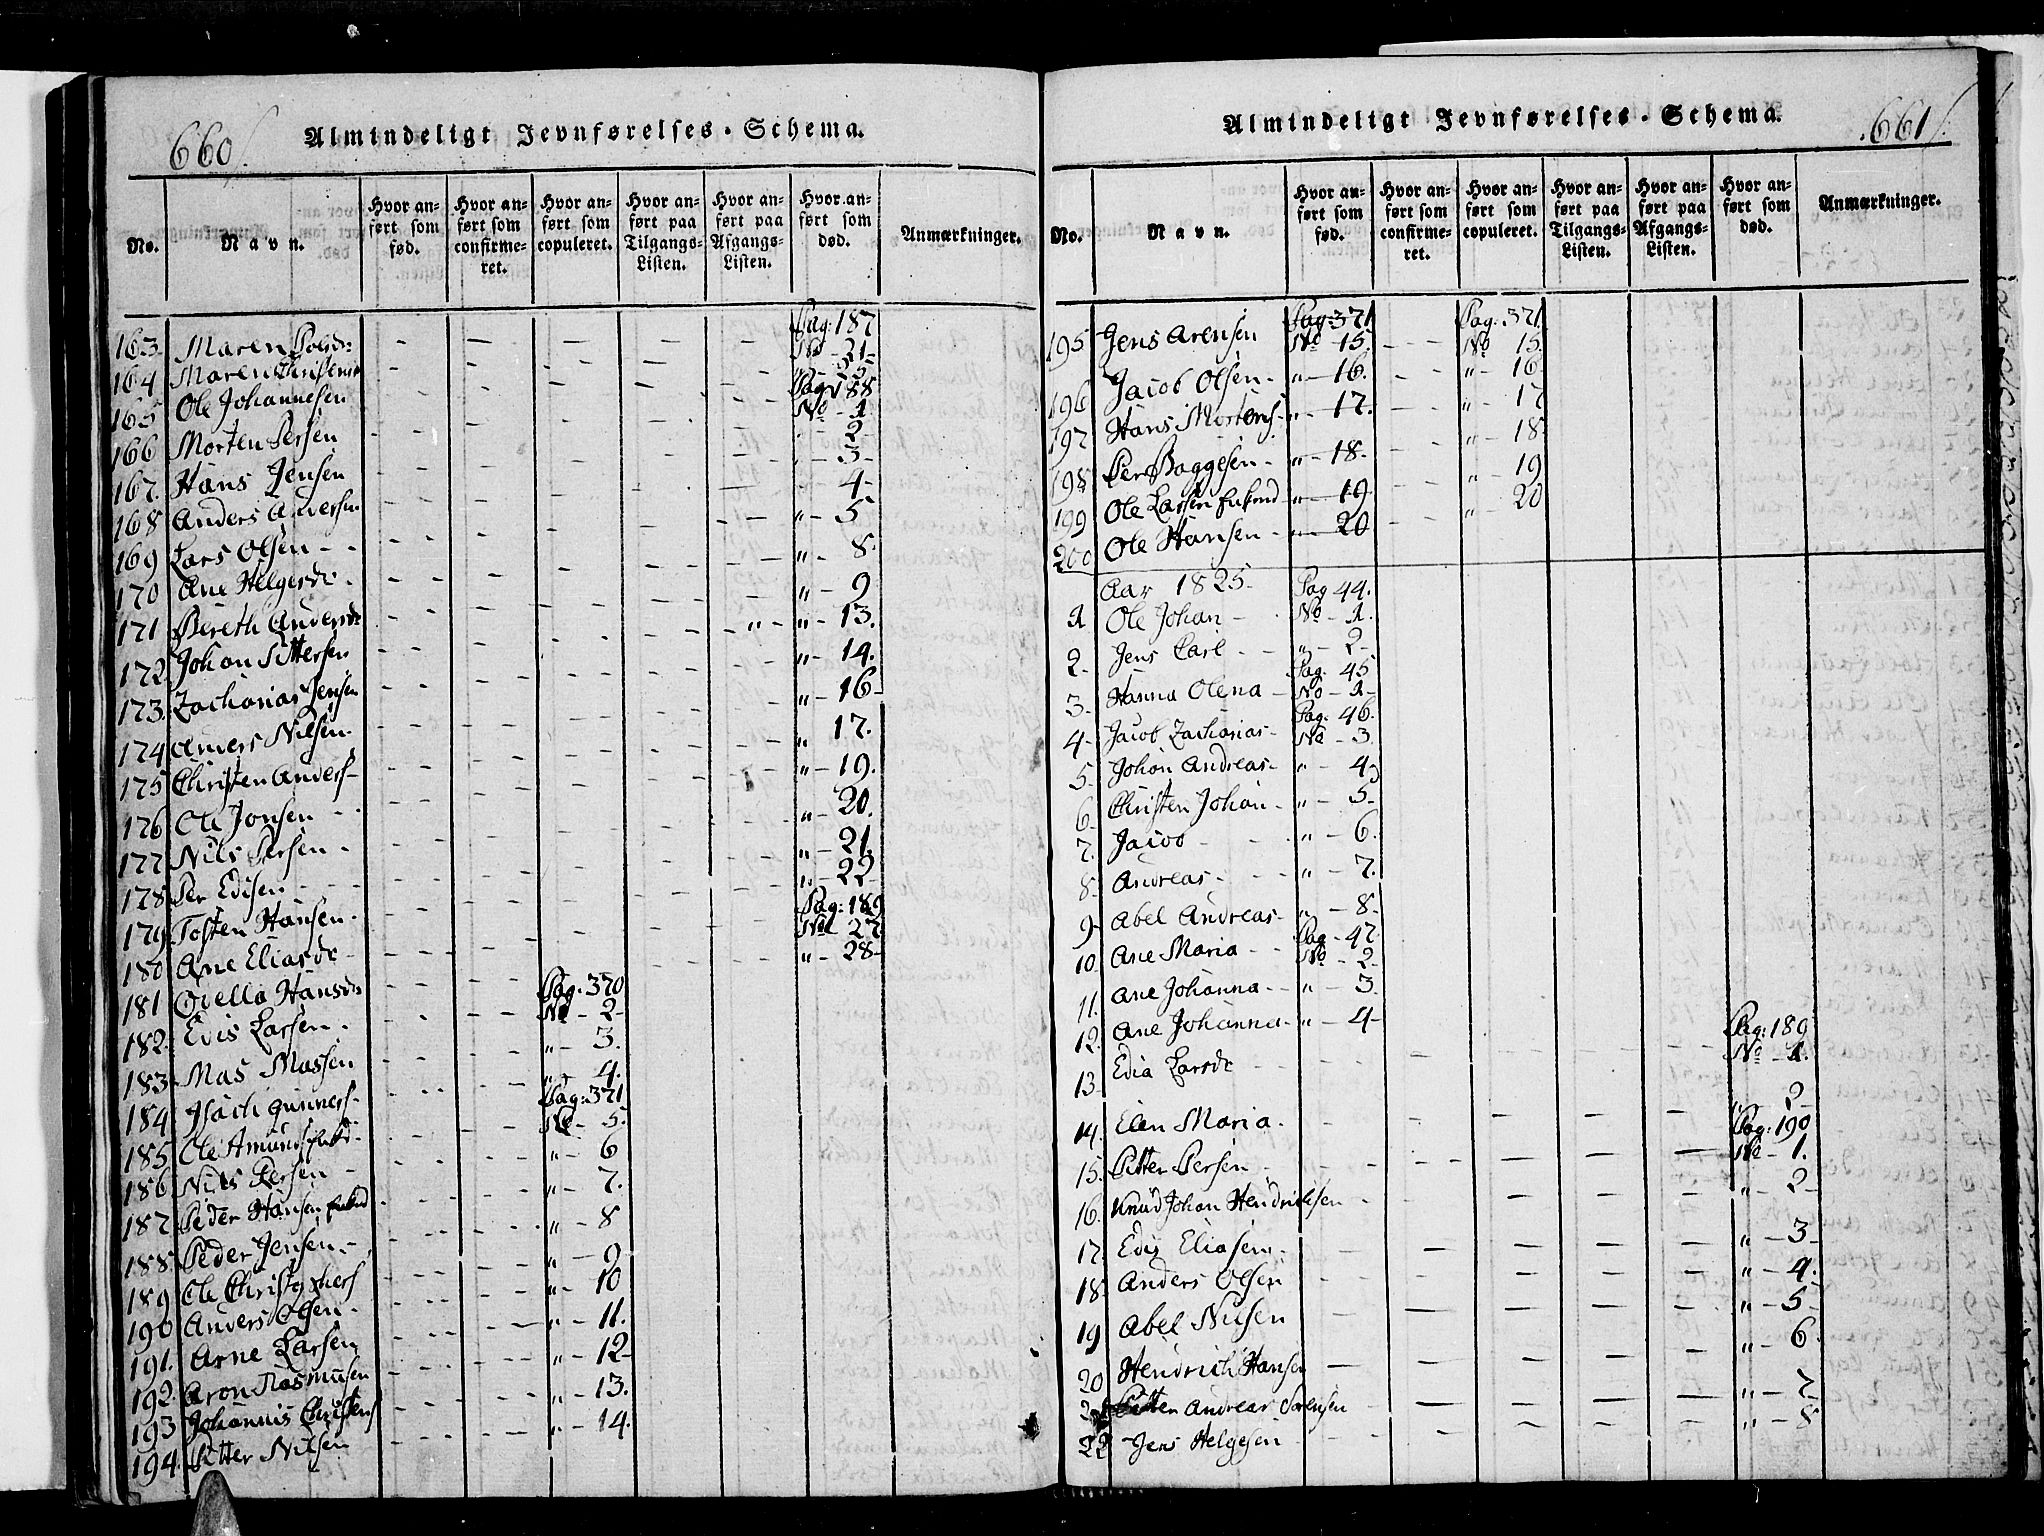 660.
Almindeligt Jevnførelses-Schema.
No.
Navn.
Hvor anført som fød.
Hvor anført som confirmeret.
Hvor anført som copuleret.
Hvor anført paa Tilgangs-Listen.
Hvor anført paa Afgangs-Listen.
Hvor anført som død.
Anmærkninger.
163. Maren Pag: 187 No - 21-
164 Maren
165 Ole Johannesen Pag: 188 No - 1
166 Morten Persen 2-
167. Hans Jensen 3-
168 Anders Andersen 4-
169 Lars Olsen - - „ - 5
170 Ane Helgersdr. „ - 8.
171 Bereth Andersdr „ - 9
172. Johan Pettersen „ - 13.
173. Zacharias Jensen „ - 14.
174 Anders Nilsen. „ - 16-
175 Christen Anders- „ 17.
176 Ole Jonsen „ - 19.
177 Nils Persen - „ - 20.
178 Per Edisen - „ - 21.
179 Tosten Hansen. „ - 22
180 Ane Eliasdr Pag: 189 No 27
181 Hansdr „ - 28-
182. Edis Larsen. Pag: 370 No - 2-
183 Mas Massen „ - 3.
184 Isach Gunners- „ - 4.
185 Ole Pag: 371 No - 5.
186 Nils Persen „ - 6
187 Peder Hansen „ - 7.
188 Peder Jensen. „ - 8
189 Ole „ - 9
190 Anders Olsen. „ - 10
191. Arne Larsen „ - 11.
192 Aron Rasmusen „ - 12-
193 Johannis Christens „ - 13.
194 Petter Nilsen „ - 14.
661.
Almindeligt Jevnførelses-Schema.
No.
Navn.
Hvor anført som fød.
Hvor anført som confirmeret.
Hvor anført som copuleret.
Hvor anført paa Tilgangs-Listen.
Hvor anført paa Afgangs-Listen.
Hvor anført som død.
Anmærkninger.
195 Jens Arensen Pag: 371 No 15. Pag: 371 No 15
196 Jacob Olsen - „ - 16. „ - 16
197 Hans Mortens- „ - 17. „ - 17
198 Per Baggesen - „ - 18. „ - 18
199 Ole Larsen „ - 19 „ - 19
200 Ole Hansen - „ - 20 „ - 20
Aar 1825- Pag 44.
1 Ole Johan - No - 1.
2- Jens Carl - „ - 2-
3. Hanna Olena - Pag: 45 No - 1-
4- Jacob Zacharias- Pag: 46. No - 3.
5. Johan Andreas- „ - 4
6. Christen Johan - „ - 5-
7. Jacob „ - 6.
8. Andreas - „ - 7.
9- Abel Andreas- „ - 8-
10. Ane Maria - Pag - 47 No - 2-
11. Ane Johanna - „ - 3.
12. Ane Johanna - „ - 4-
13. Edia Larsdr Pag: 189 No - 1.
14. Elen Maria. „ 2-
15. Petter Persen Pag: 190 No - 1.
16. Knud Johan Hendrichsen „ - 2-
17 Edis Eliasen - „ - 3-
18. Anders Olsen „ - 4.
19 Abel Nilsen „ - 5-
20 Hendrich Hansen „ - 6.
21 Petter Andreas Sørensen „ - 7
22 Jens Helgesen „ - 8